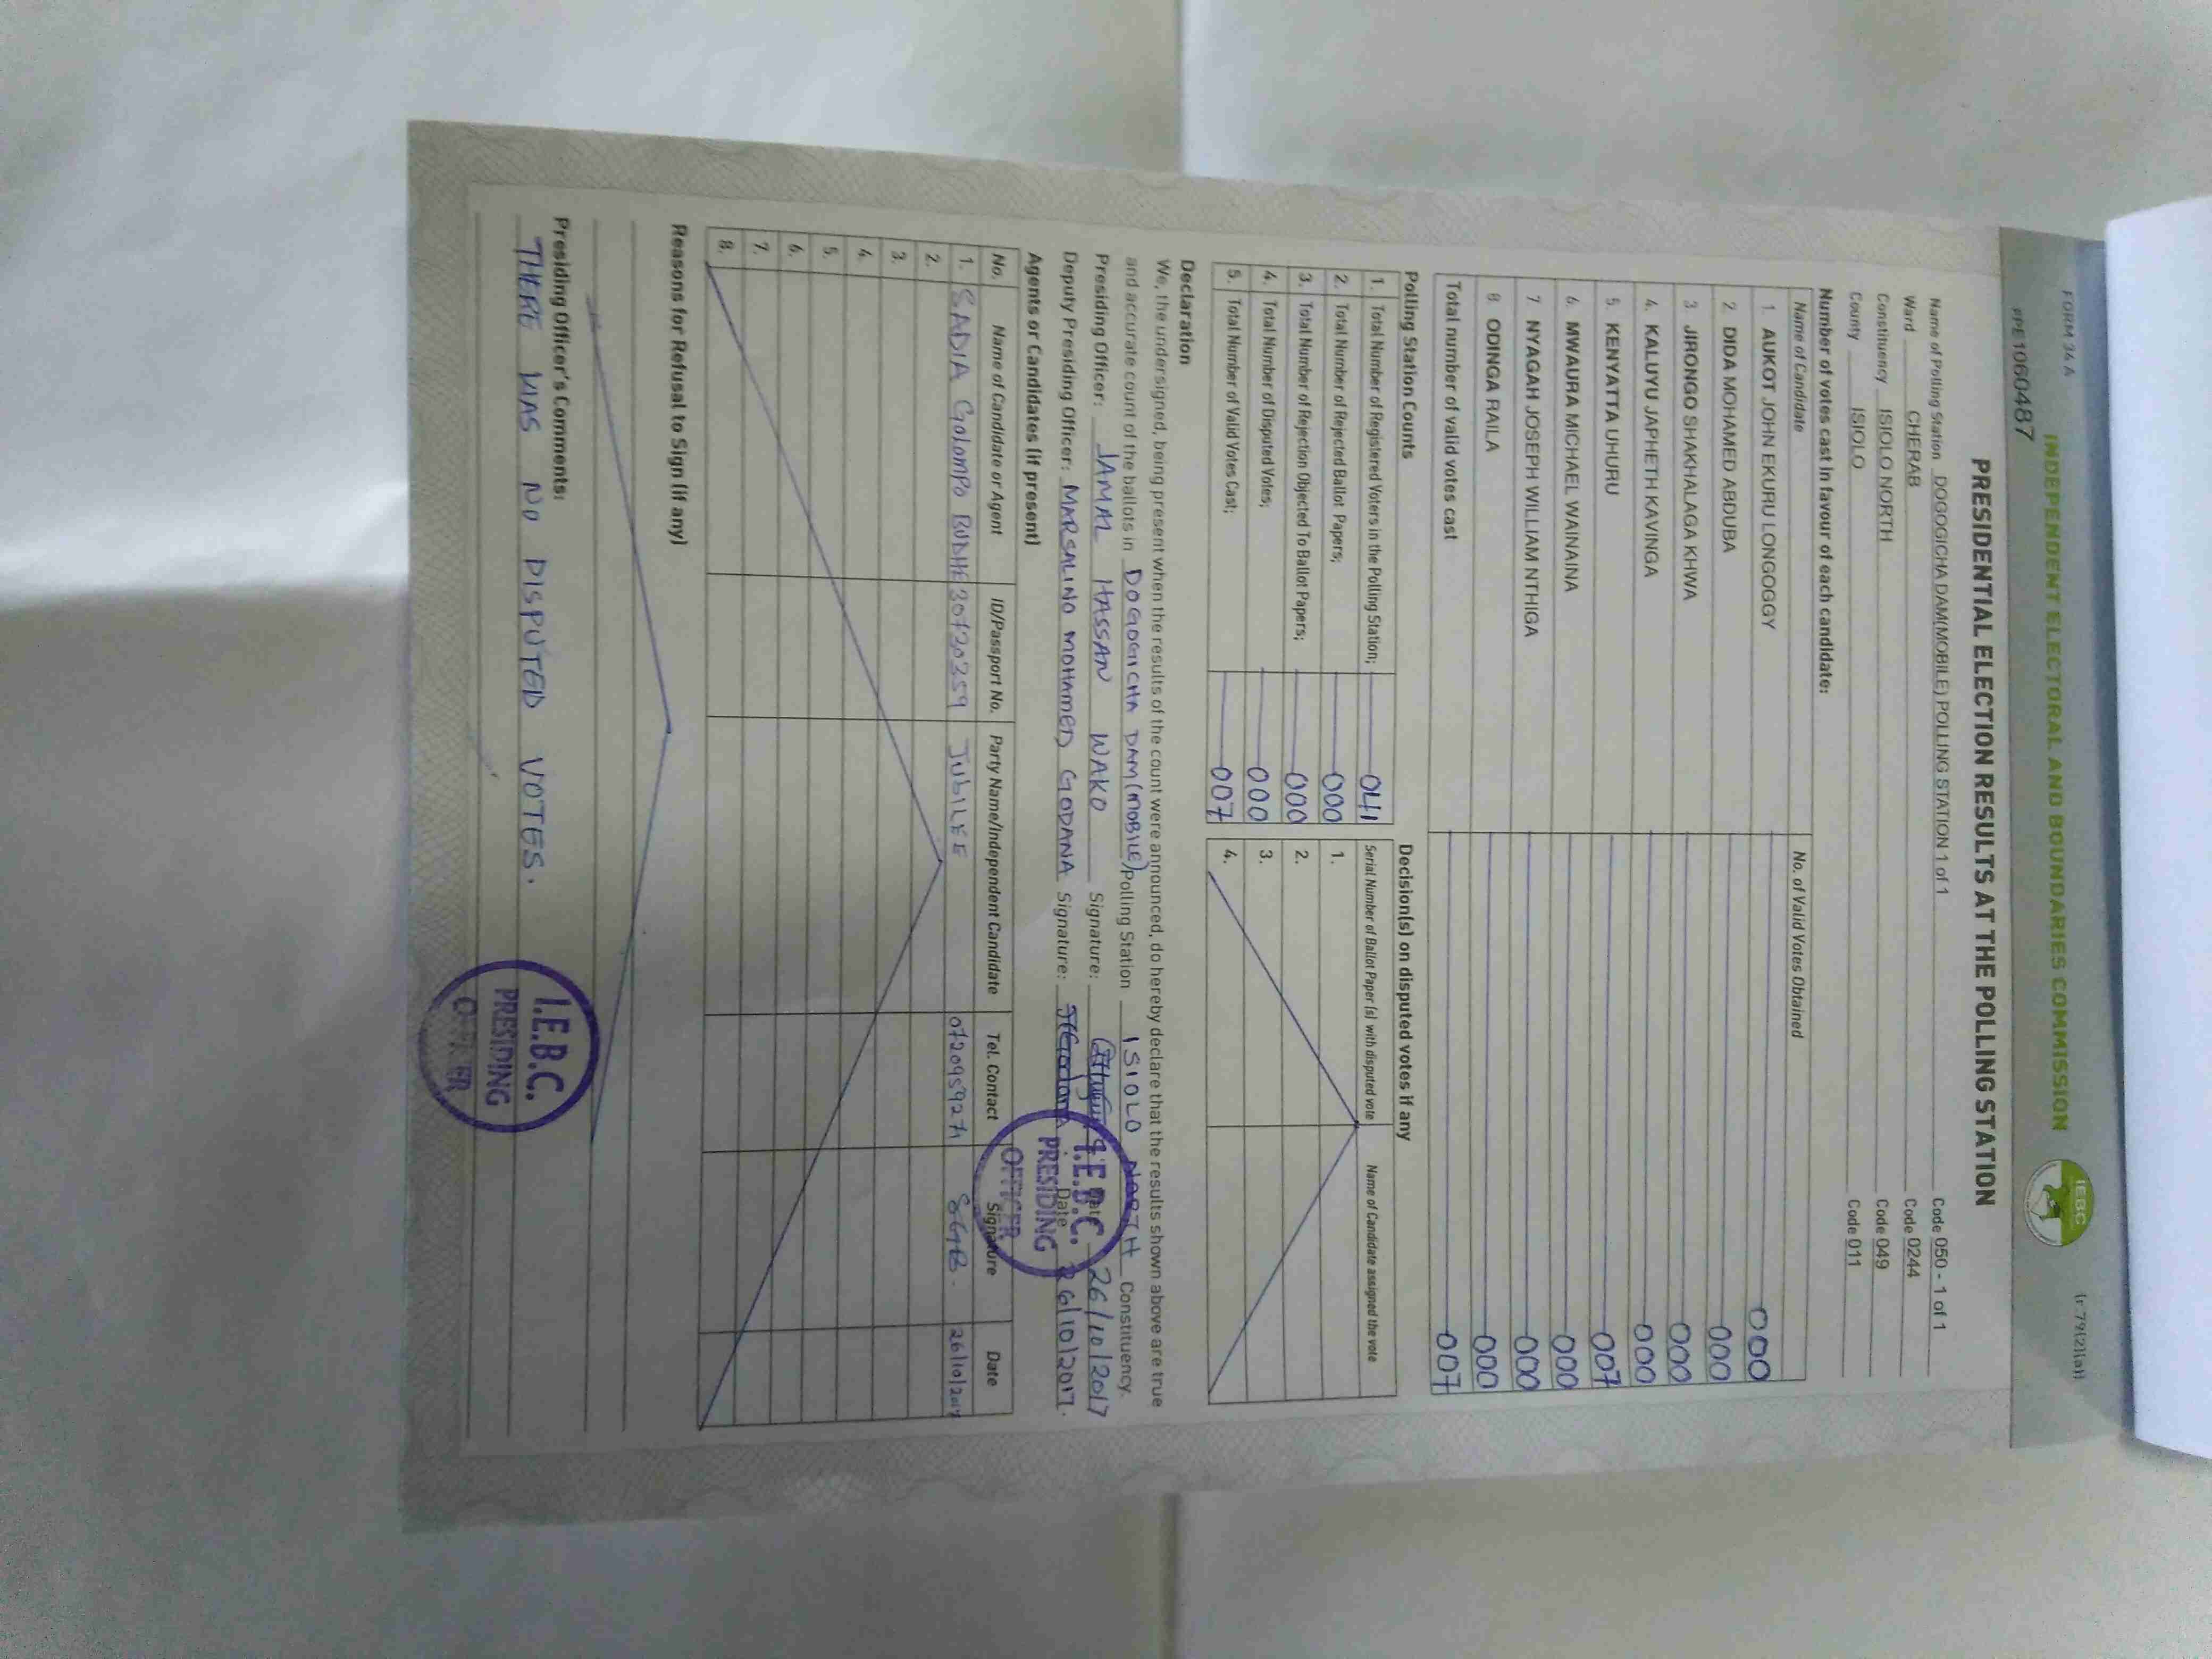 FORM 34 A
INDEPENDENT ELECTORAL AND BOUNDARIES COMMISSION
IEBC
(r.79(2)(a))
PPE1060487
PRESIDENTIAL ELECTION RESULTS AT THE POLLING STATION
Name of Polling Station DOGOGICHA DAM(MOBILE) POLLING STATION 1 of 1 Code 050 - 1 of 1
Ward CHERAB Code 0244
Constituency ISIOLO NORTH Code 049
County ISIOLO Code 011
Number of votes cast in favour of each candidate:
Name of Candidate No. of Valid Votes Obtained
1. AUKOT JOHN EKURU LONGOGGY 000
2. DIDA MOHAMED ABDUBA 000
3. JIRONGO SHAKHALAGA KHWA 000
4. KALUYU JAPHETH KAVINGA 000
5. KENYATTA UHURU 007
6. MWAURA MICHAEL WAINAINA 000
7 NYAGAH JOSEPH WILLIAM NTHIGA 000
8 ODINGA RAILA 000
Total number of valid votes cast 007
Polling Station Counts
1. Total Number of Registered Voters in the Polling Station; 041
2. Total Number of Rejected Ballot Papers; 000
3. Total Number of Rejection Objected To Ballot Papers; 000
4. Total Number of Disputed Votes; 000
5. Total Number of Valid Votes Cast; 007
Decision(s) on disputed votes if any
Serial Number of Ballot Paper (s) with disputed vote Name of Candidate assigned the vote
1.
2.
3.
4.
Declaration
We, the undersigned, being present when the results of the count were announced, do hereby declare that the results shown above are true
and accurate count of the ballots in DOGOGICHA DAM(MOBILE) Polling Station ISIOLO NORTH Constituency.
Presiding Officer: JAMAL HASSAN WAKO Signature: Date 26/10/2017
Deputy Presiding Officer: MARSALINO MOHAMED GODANA Signature: Date 26/10/2017.
I.E.B.C.
PRESIDING
OFFICER
Agents or Candidates (if present)
No. Name of Candidate or Agent ID/Passport No. Party Name/Independent Candidate Tel. Contact Signature Date
1. SADIA GOLOMPO BUDHE 30720259 JUBILEE 0720959274 SGB. 26/10/2017
2.
3.
4.
5.
6.
7.
8.
Reasons for Refusal to Sign (if any)
Presiding Officer's Comments:
THERE WAS NO DISPUTED VOTES.
I.E.B.C.
PRESIDING
OFFICER